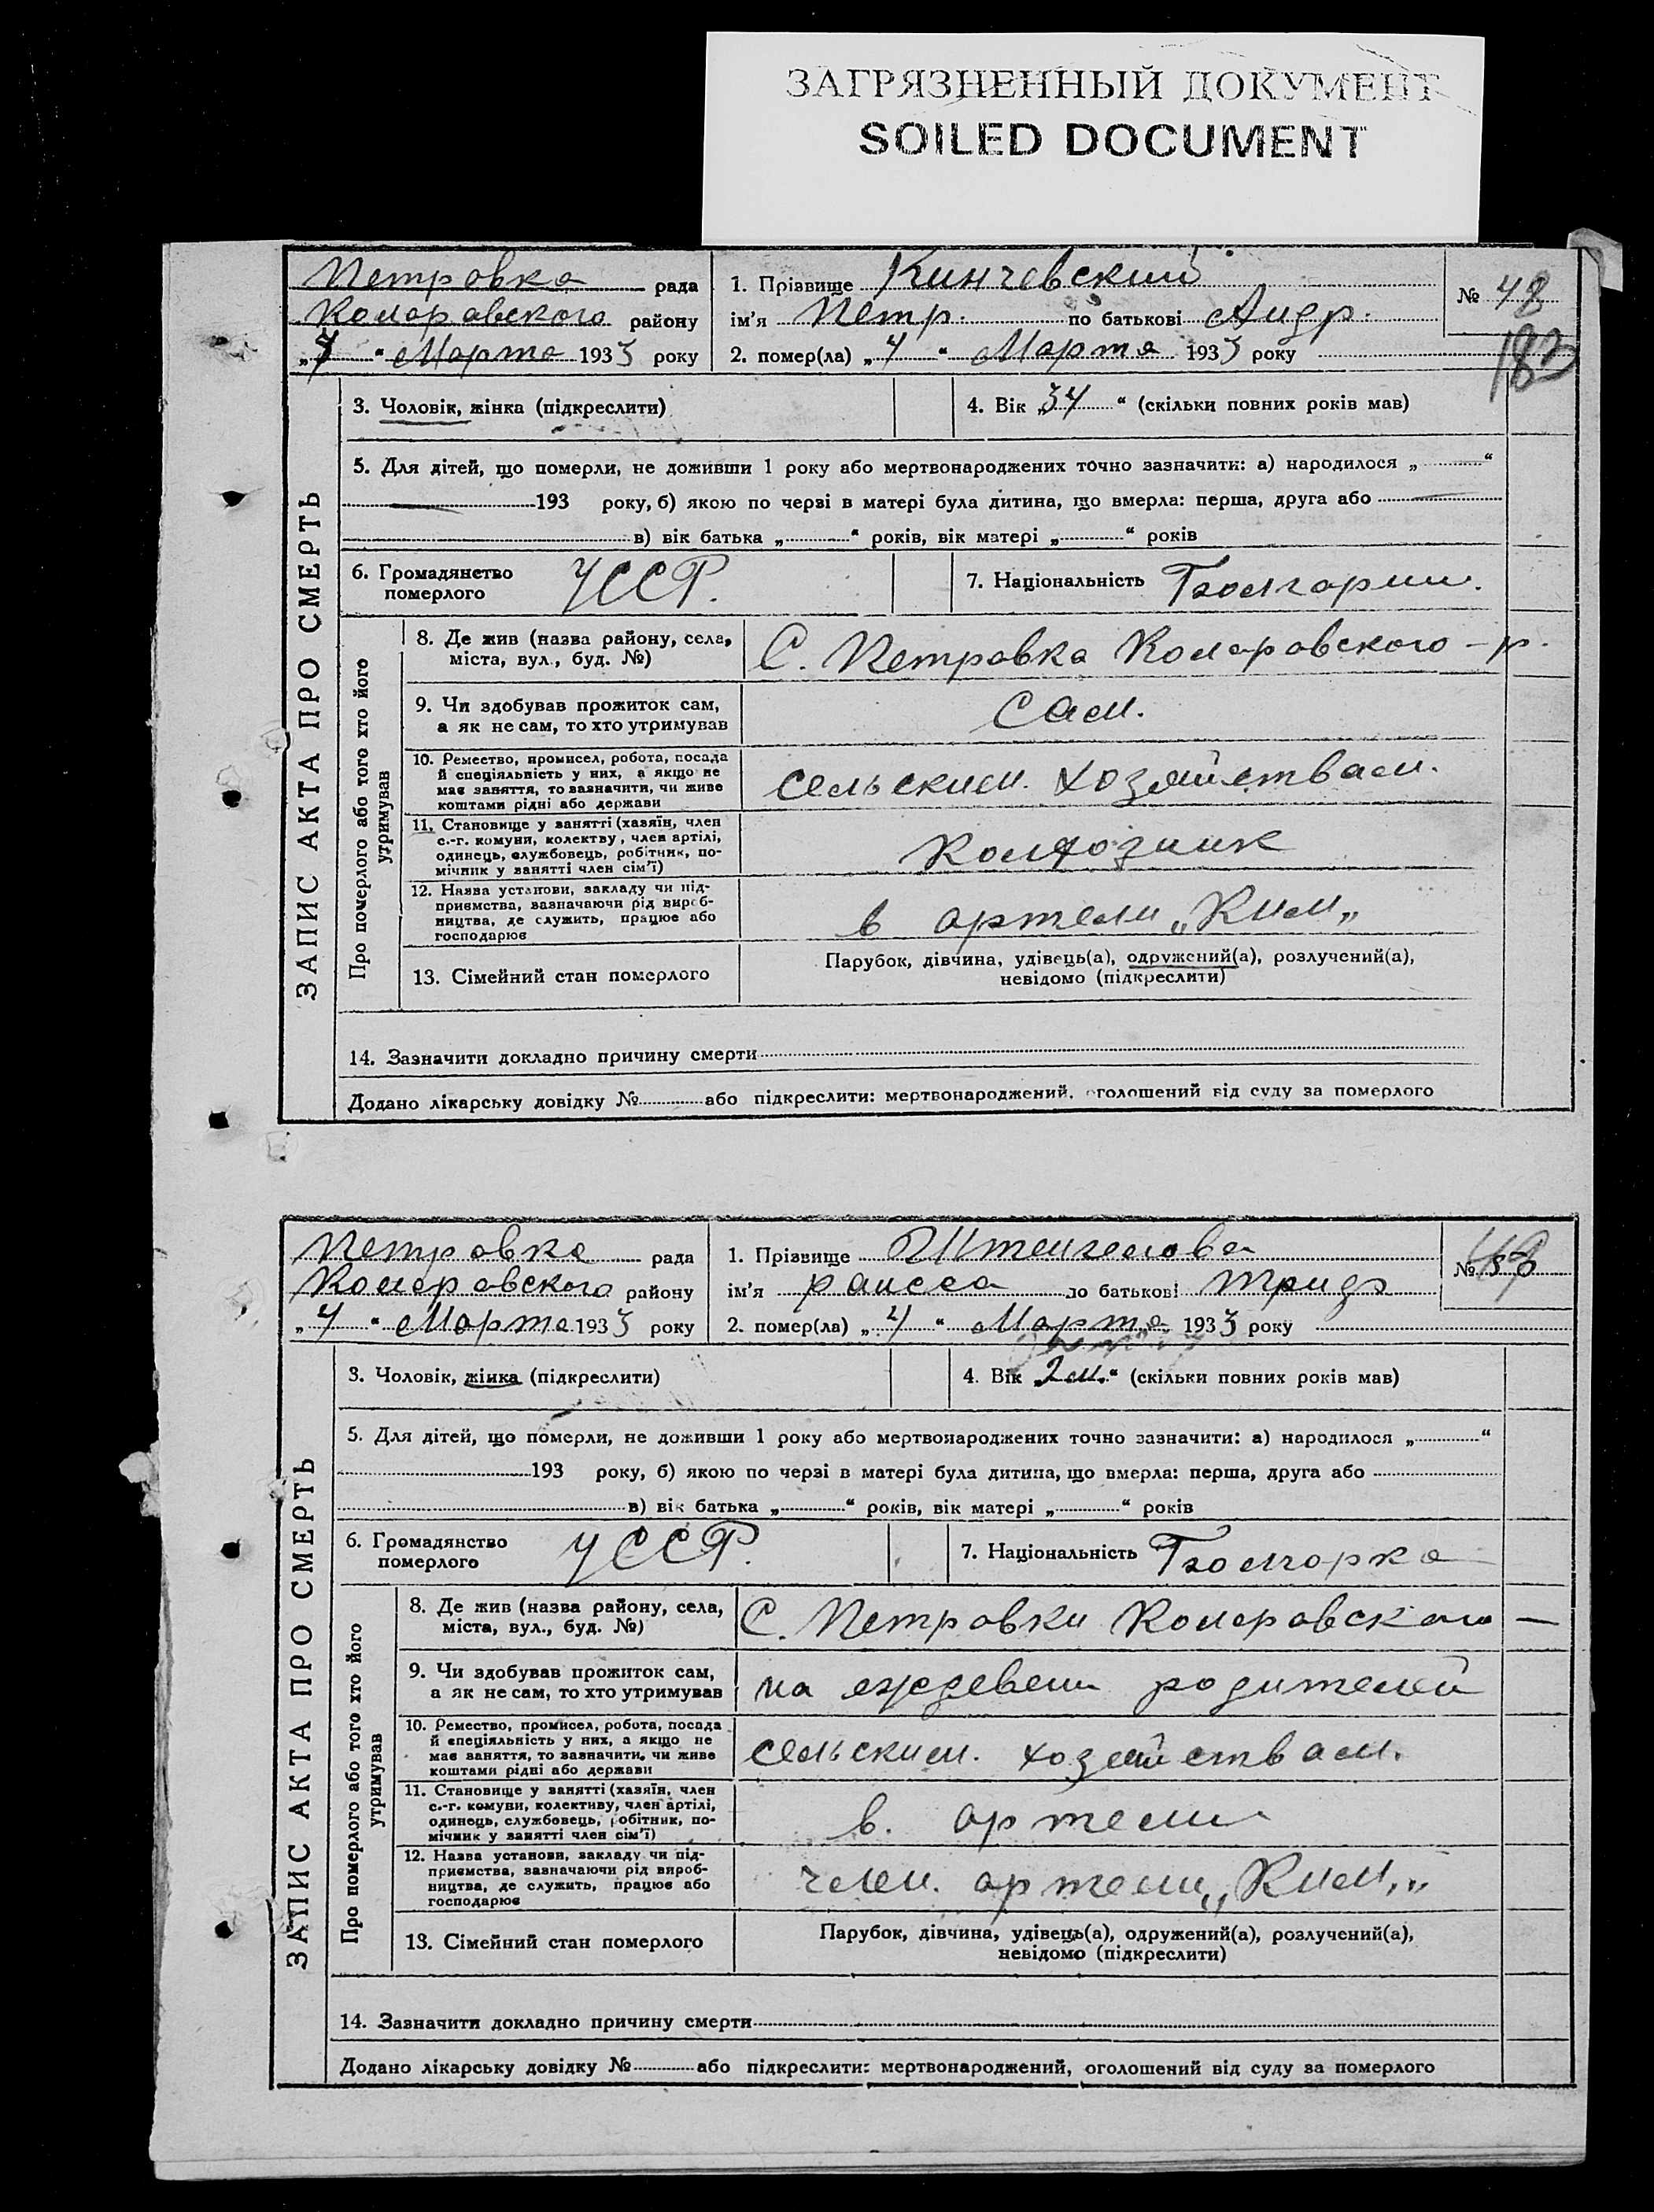 ЗАГРЯЗНЕННЫЙ ДОКУМЕНТ
SOILED DOCUMENT
Петровка рада
Коларовского району
Марта 1933 року
1. Прізвище Кинчевский
ім'я Петр. по батькові Андр.
2. помер(ла) „4“ Марта 1933 року
№ 48
183
ЗАПИС АКТА ПРО СМЕРТЬ
3. Чоловік, жінка (підкреслити)
4. Вік „34“ (скільки повних років мав)
5. Для дітей, що померли, не доживши 1 року або мертвонароджених точно зазначити: а) народилося „ “
193 року, б) якою по черзі в матері була дитина, що вмерла: перша, друга або
в) вік батька „ “ років, вік матері „ “ років
6. Громадянство
померлого
УССР.
7. Національність Болгарин.
Про померлого або того хто його
утримував
8. Де жив (назва району, села,
міста, вул., буд. №)
С. Петровка Коларовского - р.
9. Чи здобував прожиток сам,
а як не сам, то хто утримував
Сам.
10. Ремество, промисел, робота, посада
й спеціяльність у них, а якщо не
має заняття, то зазначити, чи живе
коштами рідні або держави
сельским. хозяйствам.
11. Становище у занятті (хазяїн, член
с.-г. комуни, колектву, член артілі,
одинець, службовець, робітник, по-
мічник у занятті член сім'ї)
Колхозник
12. Назва установи, закладу чи під-
приємства, зазначаючи рід вироб-
ництва, де служить, працює або
господарює
в артели „Ким„
13. Сімейний стан померлого
Парубок, дівчина, удівець(а), одружений(а), розлучений(а),
невідомо (підкреслити)
14. Зазначити докладно причину смерти
Додано лікарську довідку № або підкреслити: мертвонароджений, оголошений від суду за померлого
Петровка рада
Коларовского району
„4“ Марта 1933 року
1. Прізвище
ім'я раисса по батькові
2. помер(ла) „4“ Марта 1933 року
№
ЗАПИС АКТА ПРО СМЕРТЬ
3. Чоловік, жінка (підкреслити)
4. Вік „2 м.“ (скільки повних років мав)
5. Для дітей, що померли, не доживши 1 року або мертвонароджених точно зазначити: а) народилося „ “
193 року, б) якою по черзі в матері була дитина, що вмерла: перша, друга або
в) вік батька „ “ років, вік матері „ “ років
6. Громадянство
померлого
УССР.
7. Національність Болгорка
Про померлого або того хто його
утримував
8. Де жив (назва району, села,
міста, вул., буд. №)
С. Петровки Коларовского —
9. Чи здобував прожиток сам,
а як не сам, то хто утримував
на родителей
10. Ремество, промисел, робота, посада
й спеціяльність у них, а якщо не
має заняття, то зазначити, чи живе
коштами рідні або держави
сельским. хозяйствам.
11. Становище у занятті (хазяїн, член
с.-г. комуни, колективу, член артілі,
одинець, службовець, робітник, по-
мічник у занятті член сім'ї)
в. артели
12. Назва установи, закладу чи під-
приємства, зазначаючи рід вироб-
ництва, де служить, працює або
господарює
член. артели „Ким„
13. Сімейний стан померлого
Парубок, дівчина, удівець(а), одружений(а), розлучений(а),
невідомо (підкреслити)
14. Зазначити докладно причину смерти
Додано лікарську довідку № або підкреслити: мертвонароджений, оголошений від суду за померлого